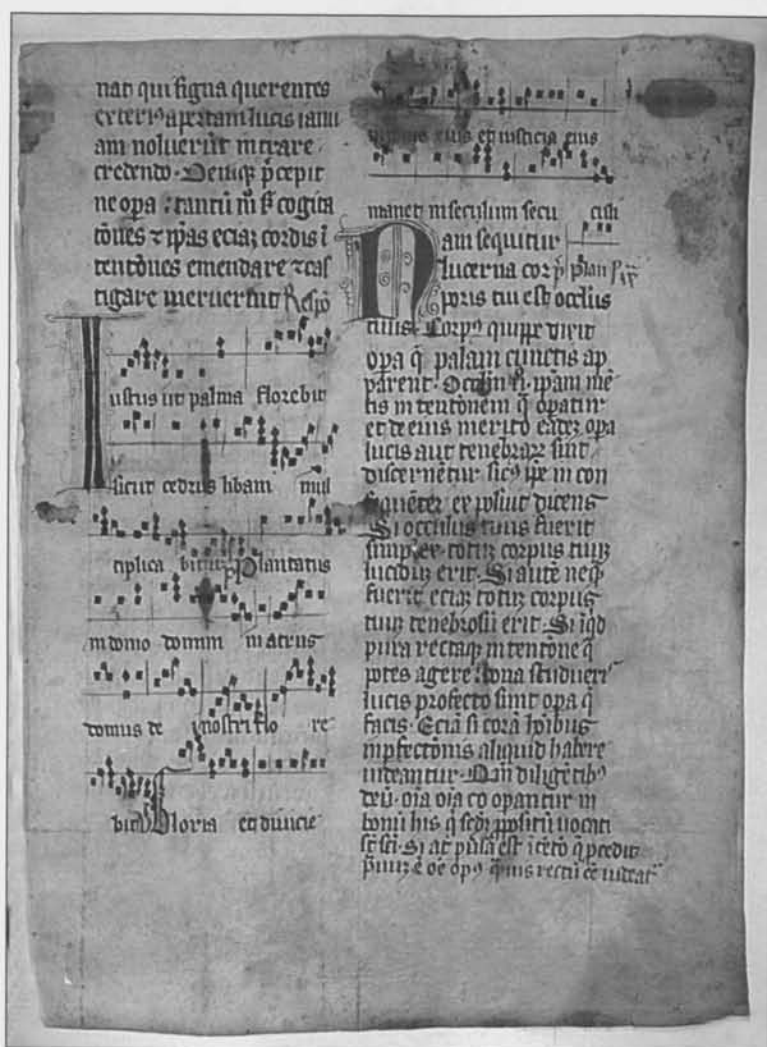 nat qui signa querentes
exteriꝰ apertam lucis ianu
am noluerūt intrare
credendo. Deniqꝫ p̄cepit
ne opa tantū cogita
tōnes ⁊ ip̄as eciaꝫ cordis ī
tentōnes emendare ⁊ cas
tigare meruerūt Respō
Iustus ut palma florebit
sicut cedrus libani mul
tiplica bitur Plantatus
in domo domini in atriis
domus dei nostri flo re
bit Gloria et diuicie
eius et iusticia eius
manet in seculum secu
Nam sequitur
lucerna corꝑ
poris tui est oculus
tuus. Corpꝰ quippe dixit
opa q̄ palam cunctis ap
parent. ip̄am mē
tis intentōnem q̄ opatur
et de eius merito eadeꝫ opa
lucis aut tenebraꝝ sint
discernētur sicꝰ ip̄e in con
sequēter exposuit dicens
Si occulus tuus fuerit
simplex totuꝫ corpus tuuꝫ
luciduꝫ erit. Si autē neqꝫ
fuerit eciaꝫ totuꝫ corpus
tuuꝫ tenebrosū erit. Si
pura rectaqꝫ intentōne q̄
potes agere bona studueris
lucis profecto sunt opa q̄
facis. Eciā si corā
inpfectōnis aliquid habere
uideantur. Nam diligētibꝰ
deū. oīa coopantur in
bonū his q̄ ꝓpositū uocati